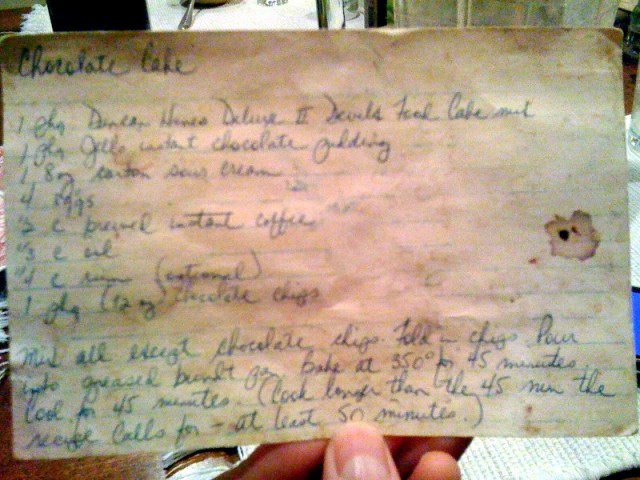 Chocolate Cake
1 pkg Duncan Hines Deluxe II Devils Food Cake mix
1 pkg Jello instant chocolate pudding
1 8 oz carton sour cream
4 eggs
1/2 c brewed instant coffee
1/3 c oil
1/4 c rum (optional)
1 pkg (12 oz) chocolate chips
Mix all except chocolate chips. Fold in chips. Pour
into greased bundt pan. Bake at 350° for 45 minutes.
Cool for 45 minutes. (Cook longer than the 45 min the
recipe calls for - at least 50 minutes.)